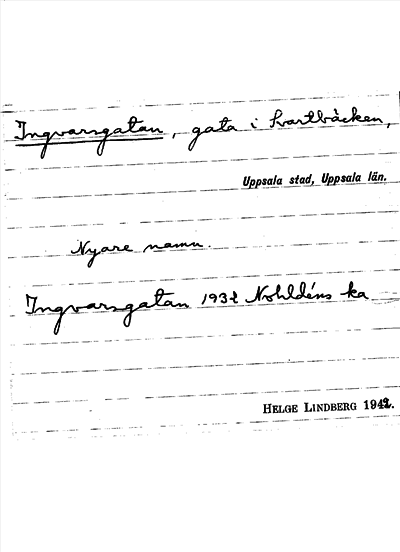 Ingvarsgatan, gata i Svartbäcken,
Uppsala stad, Uppsala län.
Nyare namn.
Ingvarsgatan 1932 Nohldéns ka
HELGE LINDBERG 1942.